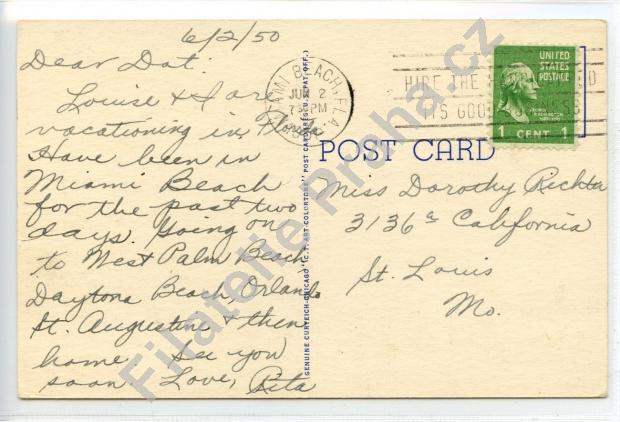 6/2/50
Dear Dot:
Louise & I are
vacationing in Florida
Have been in
Miami Beach
for the past two
days. Going on
to West Palm Beach,
Daytona Beach, Orlando
St. Augustine & then
home. See you
soon. Love, Rita
GENUINE CURTEICH-CHICAGO "C.T. ART-COLORTONE" POST CARD (REG. U.S. PAT. OFF.)
MIAMI BEACH, FLA.
JUN 2
PM
1950
HIRE THE
ITS GOOD BUSINESS
UNITED
STATES
POSTAGE
1 CENT 1
POST CARD
Miss Dorothy Richter
3136a California
St. Louis
Mo.
Filatelie Praha.cz